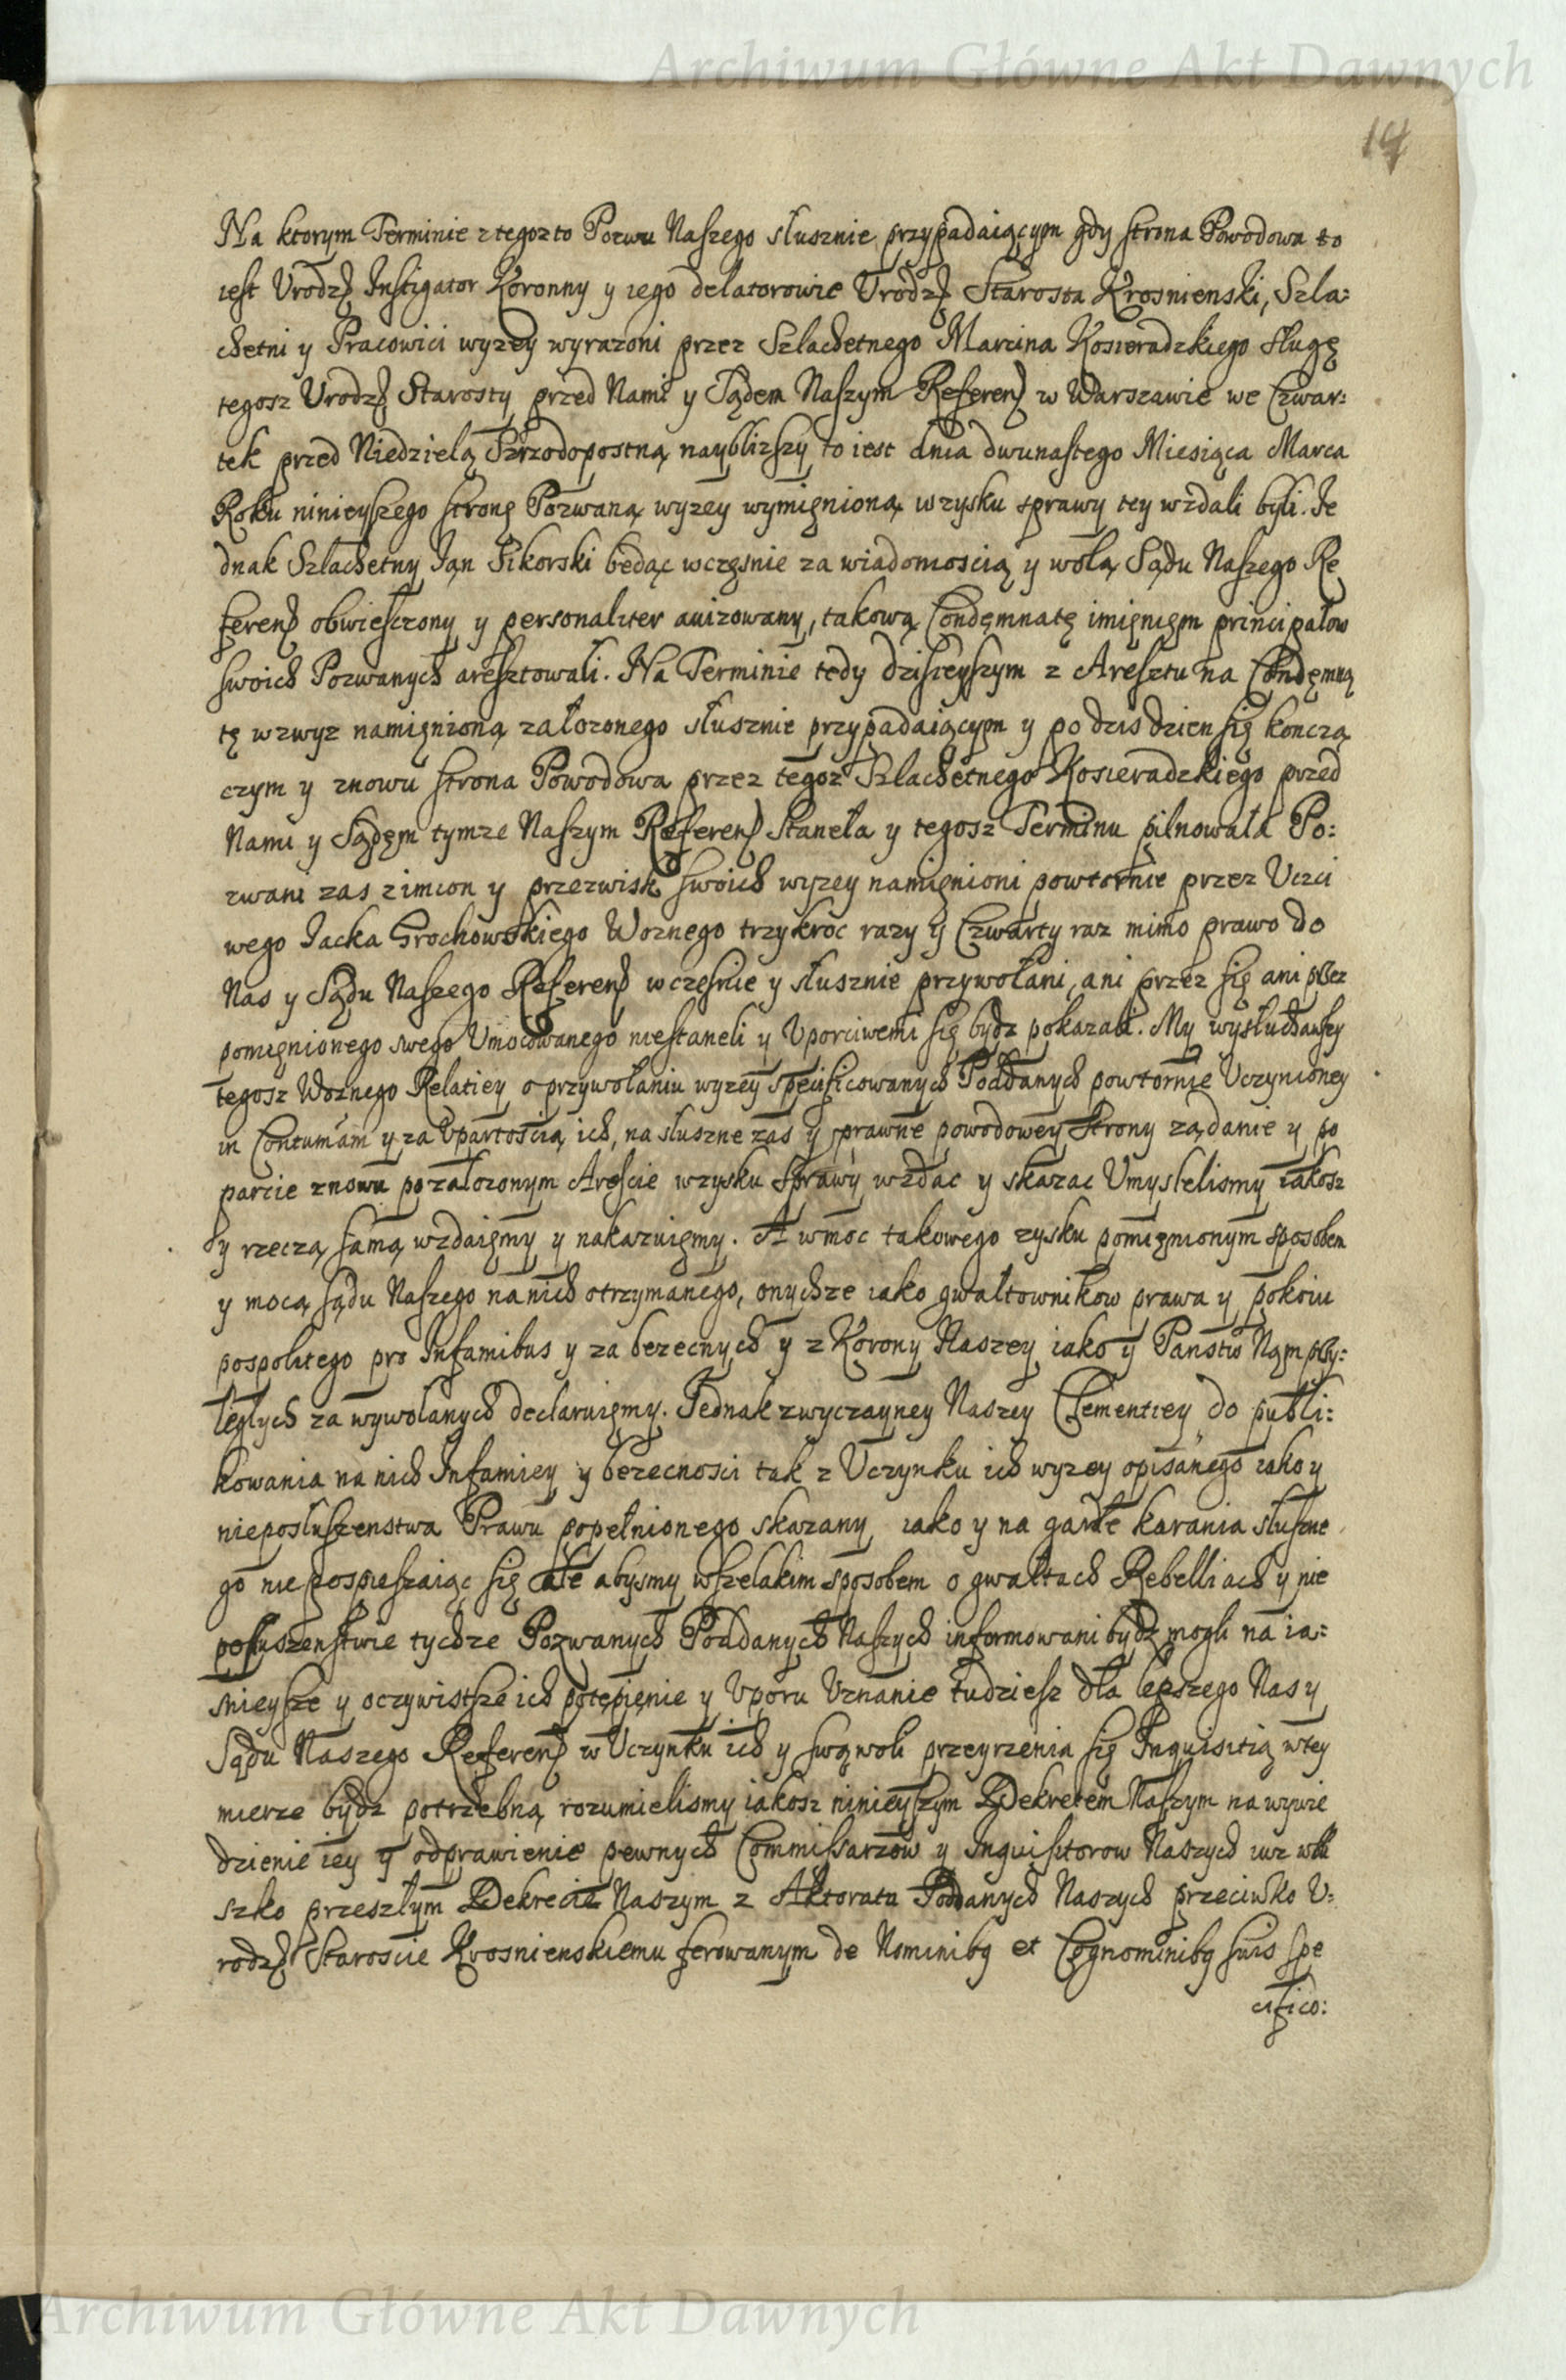 Archiwum Główne Akt Dawnych
14
Na ktorym Terminie z tegoz to Pozwu Naszego słusznie przypadaiącym gdy strona Powodowa to
iest Urodz. Instigator Koronny y iego delatorowie Urodz. Starosta Krosnienski, Szla:
chetni y Pracowici wyzey wyrazoni przez Szlachetnego Marcina Kosieradzkiego sługę
tegosz Urodz. Starosty przed Nami y Sądem Naszym Referen. w Warszawie we Czwar:
tek przed Niedzielą Szrzodopostną nayblizszy to iest dnia dwunastego Miesiąca Marca
Roku ninieyszego stronę Pozwaną wyzey wymięnioną w zysku sprawy tey wzdali byli. Je
dnak Szlachetny Jan Sikorski będąc wczęsnie za wiadomoscią y wolą Sądu Naszego Re
feren. obwiesczony y personaliter auizowany, takową Condęmnatę imięnięm principałow
swoich Pozwanych aresztowali. Na Terminie tedy dzisieyszym z Aresztu na Condęmna
tę wzwyz namięnioną załozonego słusznie przypadaiącym y po dzis dzien się koncza
czym y znowu strona Powodowa przez tegoz Szlachetnego Kosieradzkiego przed
Nami y Sądęm tymze Naszym Referen. Staneła y tegosz Terminu pilnowała Po:
zwani zas z imion y przezwisk swoich wyzey namięnioni powtornie przez Uczci
wego Jacka Grochowskiego Woznego trzykroc razy y Czwarty raz mimo prawo do
Nas y Sądu Naszego Referen. wczęsnie y słusznie przywołani, ani przez się ani przez
pomięnionego swego Umocowanego niestaneli y Uporciwemi się bydz pokazali. My wysłuchawszy
tegosz Woznego Relatiey o przywołaniu wyzey specificowanych Poddanych powtornie Uczynioney
in Contumam y za Upartoscią ich, na słuszne zas y sprawne powodowey Strony ządanie y po
parcie znowu po załozonym Arescie w zysku Sprawy wzdac y skazac Umyslelismy iakosz
y rzeczą samą wzdaięmy y nakazuięmy. A w moc takowego zysku pomięnionym sposobem
y mocą sądu Naszego na nich otrzymanego, onychze iako gwałtownikow prawa y pokoiu
pospolitego pro Infamibus y za bezecnych y z Korony Naszey iako y Panstw Nam przy:
ległych za wywołanych declaruięmy. Jednak zwyczayney Naszey Clementiey do publi:
kowania na nich Infamiey y bezecnosci tak z Uczynku ich wyzey opisanego iako y
nieposłuszenstwa Prawu popełnionego skazany iako y na gardłe karania słuszne
go nie pospieszaiąc się ale abysmy wszelakim sposobem o gwałtach Rebelliach y nie
posłuszenstwie tychze Pozwanych Poddanych Naszych informowani bydz mogli na ia:
snieysze y oczywistsze ich potępięnie y Uporu Uznanie tudziesz dla lepszego Nas y
Sądu Naszego Referen. w Uczynku ich y swąwoli przeyrzenia się Inquisitią w tey
mierze bydz potrzebną rozumielismy iakosz ninieyszym Dekretem Naszym na wywie
dzienie iey y odprawienie pewnych Commissarzow y Inquisitorow Naszych iuz w
szko przeszłym Dekrecie Naszym z Aktoratu Poddanych Naszych przeciwko U:
rodz. Staroscie Krosnienskiemu ferowanym de Nominibq et Cognominibq suis spe
cifico:
Archiwum Główne Akt Dawnych